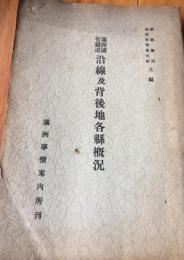 滿洲國
有鐵道
沿線及背後地各縣概況
滿洲事情案內所刊